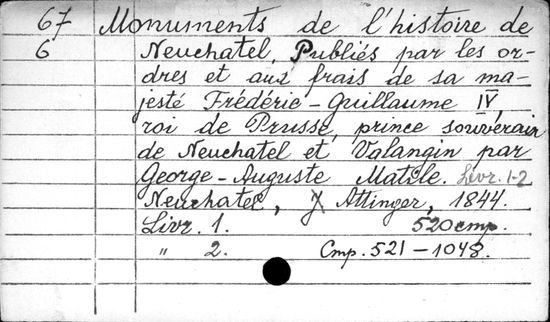 67 Monuments de l'histoire de
6 Neuchatel, Publiés par les or-
dres et aux frais de sa ma-
jesté Frédéric-Guillaume IV,
roi de Prusse, prince souverain
de Neuchatel et Valangin par
George-Auguste Matile. Livr. 1-2
Neuchatel, J Attinger, 1844.
Livr. 1. 520 cmp.
" 2. Cmp. 521-1048.